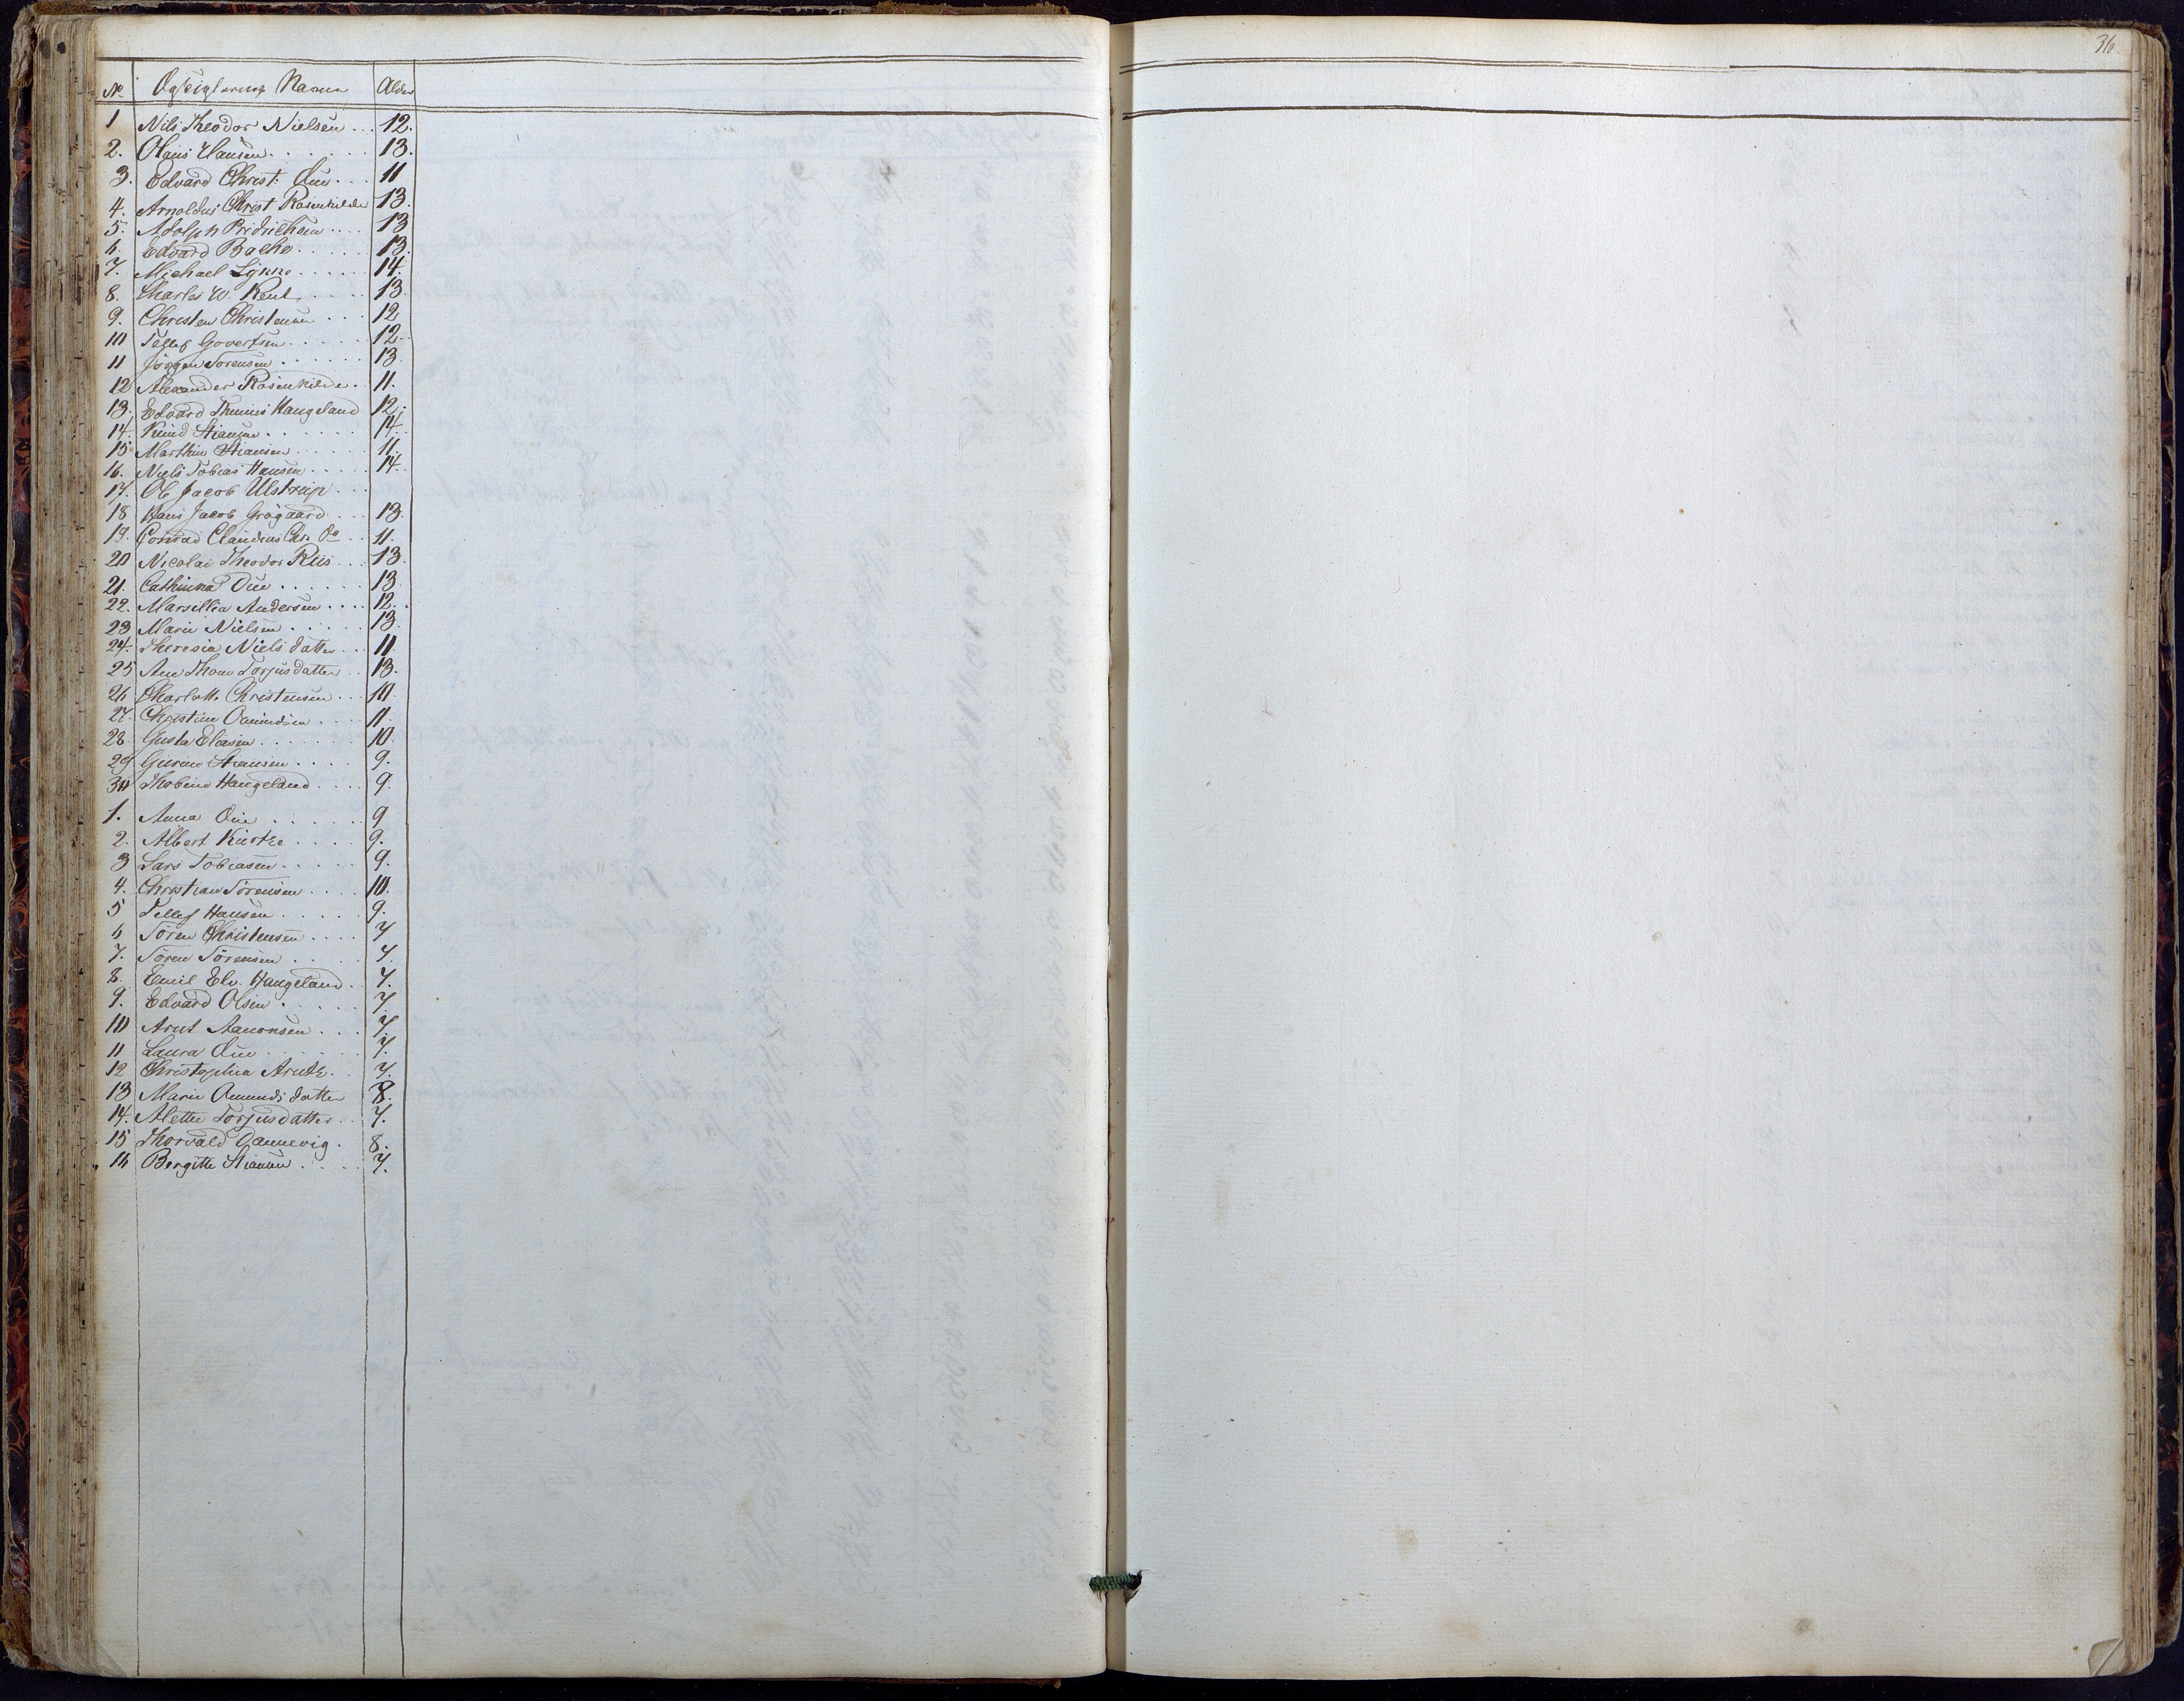 36.
No Navne Alder
1 Nils Theodor Nielsen 12.
2. Olaus Clausen 13.
3. Edvard Christ. Due 11
4. Arnoldus Christ Rosenkilde 13.
5. Adolph 13
6. Edvard Bache 13.
7. Michael 14.
8. Charles W. Kent 13.
9. Christen Christensen 12
10 Tellef Govertsen 12
11 Jörgen Sorensen 13
12 Alexander Rosenkilde 11.
13. Edvard Haugeland 12.
14. Knud Stiansen 14.
15 Marthin Stiansen 11.
16. Niels Tobias Hansen 14.
17. Ole Jacob Ulstrup
18 Hans Jacob Grögaard 13.
19. Conrad Claudius Chr. Do 11.
20 Nicolai Theodor Riis 13.
21. Cathinka Due 13.
22. Marsillia Andersen 12.
23 Marie Nielsen 13.
24. Theresia Niels datter 11.
25 Ane Thom Torjusdatter 13.
26 Charlotte Christensen 10.
27. Christine Omundsen 11.
28 Gusta Eliasen 10.
29 Gurine Stiansen 9.
30 Thobine Haugeland 9.
1. Anna Due 9
2. Albert Kurtze 9.
3 Lars Tobiasen 9.
4. Christian Sörensen 10.
5 Tellef Hansen 9.
6 Sören Christensen 7
7. Sören Sörensen 7.
8. Emil Elv. Haugeland 7.
9. Edvard Olsen 7
10 Arnt Aanonsen 7.
11 Laura Due 7.
12 Christophia Arntz 7.
13 Marie Omunds datter 8.
14. Alette Torjusdatter 7.
15 Thorvald Dannevig 8.
16 Bergitte Stiansen 7.